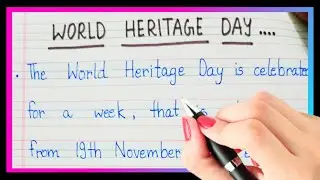 WORLD HERITAGE DAY....
. The World Heritage Day is celebrate
for a week, that is
from 19th November